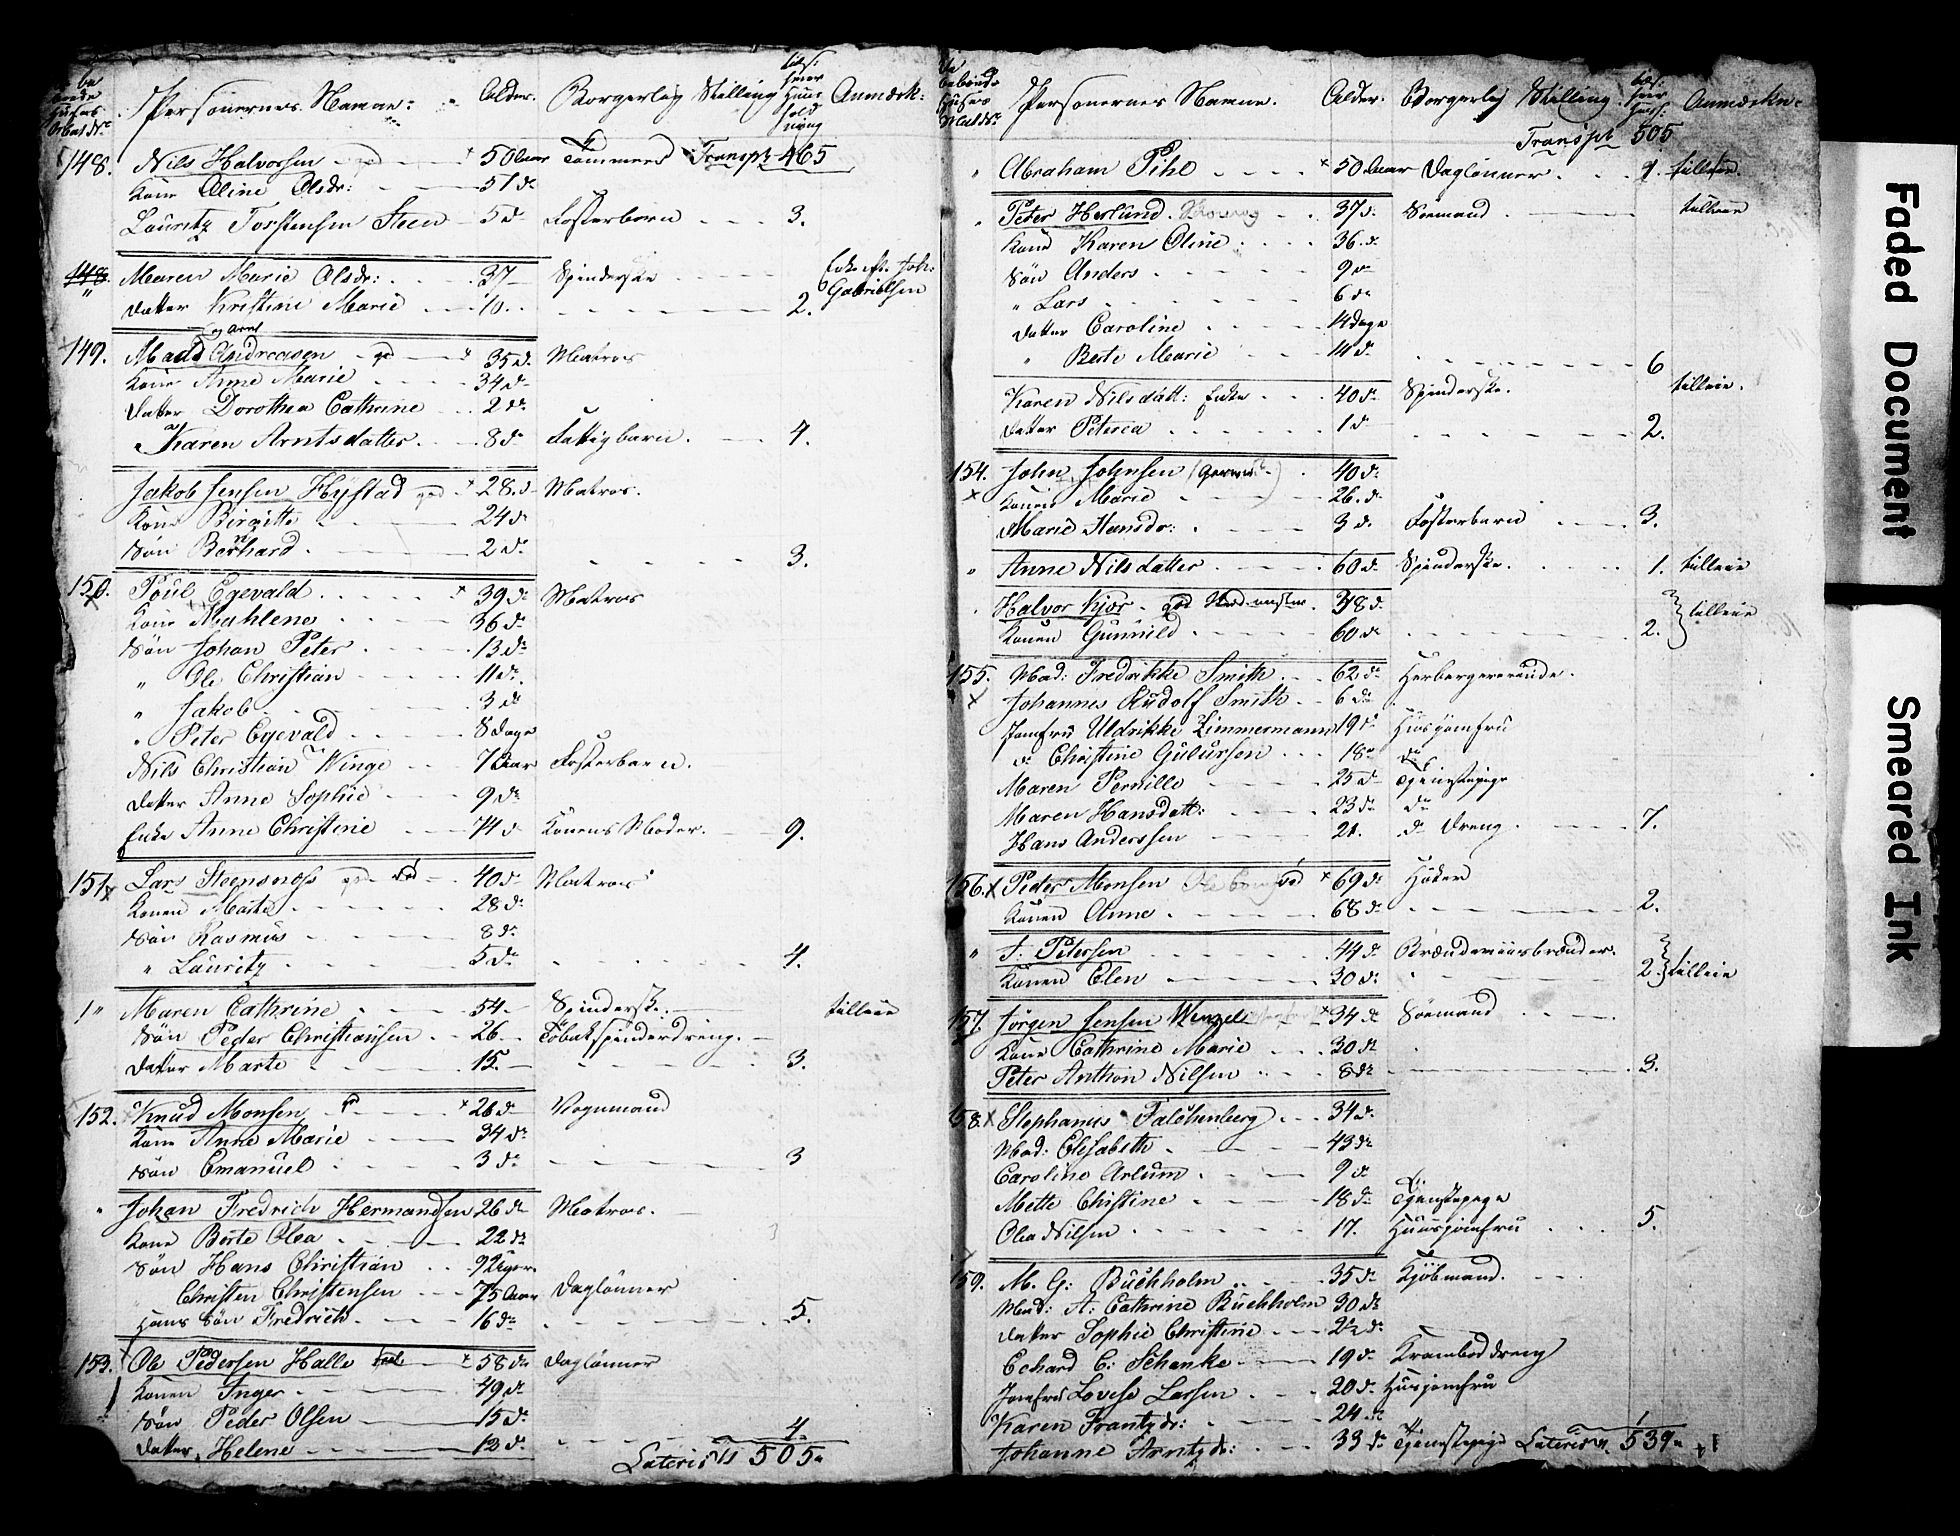 Personernes Navne: Alder. Borgerlig Stilling Anmærk:
148. Nils Halvorsen 50 Aar Tømmermd Transpt 465
Kone Oline Olsdr: 51 do
Lauritz Torstensen Steen 5 do Fosterbarn 3.
148. Maren Marie Olsdr: 37 Spinderske Enke eft. Joh: Gabrielsen
Datter Kristine Marie 10 2.
149. Mads Andreasen 35 do Matros
Kone Anne Marie 34 do
Datter Dorothea Cathrine 2 do
" Karen Arntsdatter 8 do Fattigbarn. 4.
Jakob Jensen Hystad 28 do Matros.
Kone Birgitte 24 do
Søn Bernhard 2 do 3.
150. Poul Egevald 39 do Matros
Kone Mahlene 36 do
Søn Johan Peter 13 do
" Ole Christian 11 do
" Jakob 3 do
" Peter Egevald 8 Dage
Nils Christian Winge 7 Aar Fosterbarn.
Datter Anne Sophie 9 do
Enke Anne Christine 74 do Konens Moder. 9.
151. Lars Steensnæs 40 do Matros
Konen Marte 28 do
Søn Rasmus 8 do
" Lauritz 5 do 4.
" Maren Cathrine 54 Spindersk: tilleie
Søn Peder Christiansen 26 Tobakspinderdreng.
Datter Marte 15 3.
152. Knud Monsen 26 do Vognmand
Kone Anne Marie 34 do
Søn Emanuel 3 do 3
" Johan Fredrich Hermandsen 26 do Matros.
Kone Berte Olea 22 do
Søn Hans Christian 9 Uger
Christen Christensen 75 Aar Daglønner
Hans Søn Fredrich 16 do 5.
153. Ole Pedersen Halle 58 do Daglønner
Konen Inger 49 do
Søn Peder Olsen 15 do
Datter Helene 13 do 4.
Lateris 505
Personernes Navne. Alder: Borgerlig Stilling Anmærkn:
Transpt 505
" Abraham Pihl 50 Aar Daglønner 1. tilleie.
" Peter Herlund 37 do Sømand tilleie
Kone Karen Oline 36 do
Søn Anders 9 do
" Lars 6 do
Datter Caroline 14 Dage
" Berte Marie 14 do 6
Karen Nilsdatt: Enke 40 do Spinderske. tilleie.
Datter Peterea 1 do 2.
154. John Johnsen 40 do
Konen Marie 26 do
Marie Hansdr: 3 do Fosterbarn 3.
" Anne Nilsdatter 60 do Spinderske 1. tilleie
Halvor Kjær 38 do
Konen Gunnild 60 do 2. tilleie
155. Mad: Fredrikke Smith 62 do Herbergererende.
Johannes Rudolf Smith 6 do
Jomfru Uldrikke Zimmermann 19 do Husjomfru
do Christine Gulursen 18 do do
Maren Pernille 25 do Tjenestepige
Maren Hansdatt: 23 do do
Hans Anderssen 21. do Dreng 7.
156. Peder Monsen 69 do Høker
Konen Anne 68 do 2.
" J: Petersen 44 do Brændeviinsbrænder.
Konen Elen 30 do 2. tilleie
157. Jørgen Jensen Wenzel 34 do Sømand
Kone Cathrine Marie 30 do
Peter Anthon Nilsen 8 do 3.
158. Stephanus Falchenberg 34 do
Mad: Elisabeth 43 do
Caroline Arlum 9 do
Mette Christine 18 do Tjenstepige
Olea Nilsen 17. Huusjomfru 5.
159. M. G: Buchholm 35 do Kjøbmand.
Mad: A: Cathrine Buchholm 30 do
Datter Sophie Christine 2½ do
Echard C: Schanke 19 do Krambod dreng
Jomfru Lovise Larsen 20 do Husjomfru
Karen Frantzdr: 24 do
Johanne Arntzdr: 33 do Tjenestepige Lateris 539
Faded Document
Smeared Ink